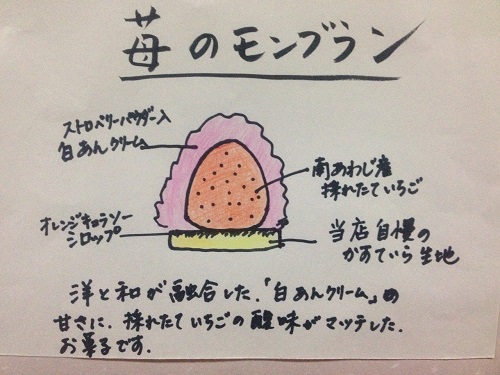 苺のモンブラン
ストロベリーパウダー入
白あんクリーム
南あわじ産
採れたていちご
オレンジキュラソー
シロップ
当店自慢の
かすていら生地
洋と和が融合した.「白あんクリーム」の
甘さに.採れたていちごの酸味がマッテした.
お菓子です.